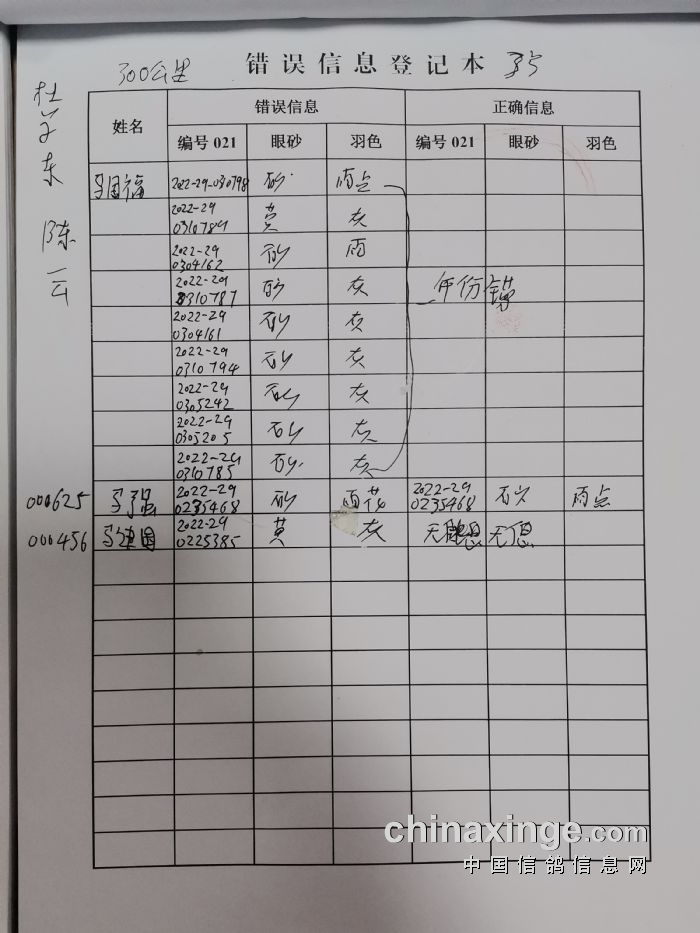 300公里 错误信息登记本
杜 东 陈云
姓名 错误信息 正确信息
编号 021 眼砂 羽色 编号 021 眼砂 羽色
马国福 2022-29-0310798 砂 雨点
2022-29
0310789 黄 灰
2022-29
0304162 砂 雨
2022-29
0310787 砂 灰
年份错
2022-29
0304161 砂 灰
2022-29
0310794 砂 灰
2022-29
0305242 砂 灰
2022-29
0305205 砂 灰
2022-29
0310785 砂 灰
000625 马 2022-29
0235468 砂 雨花 2022-29
0235468 砂 雨点
000456 马建国 2022-29
0225385 黄 灰 无 无信
chinaxinge.com
中国信鸽信息网